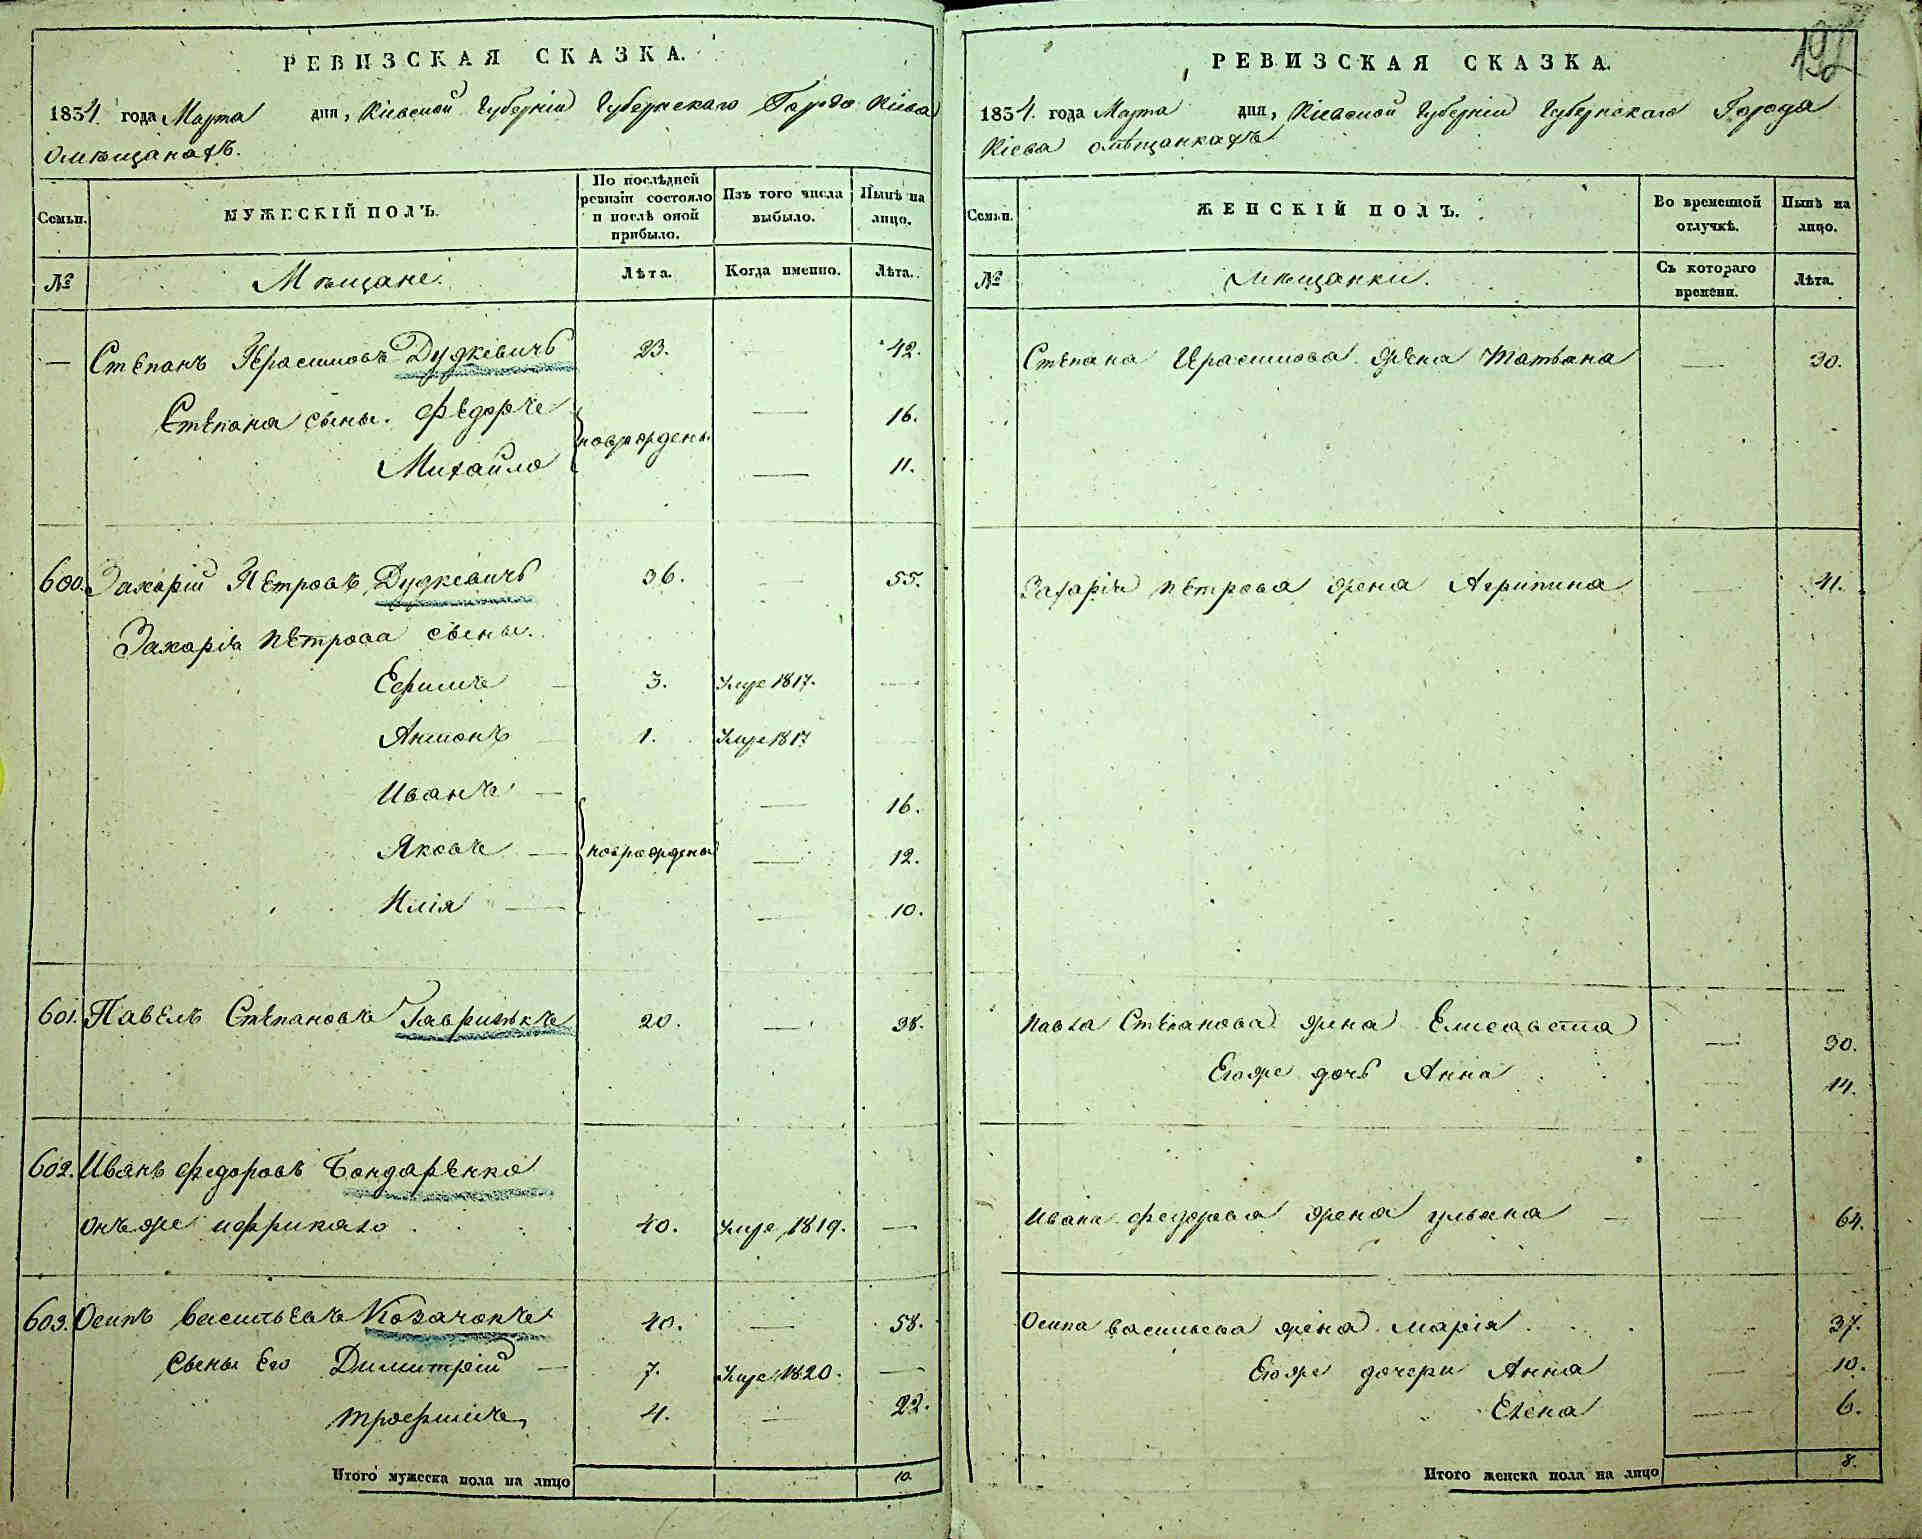 РЕВИЗСКАЯ СКАЗКА.
1834 года Марта дня, Кіевской Губерніи Губернскаго Города Кіева
о мѣщанахъ.
Семьи.
МУЖЕСКІЙ ПОЛЪ.
По послѣдней ревизіи состояло и послѣ оной прибыло.
Изъ того числа выбыло.
Нынѣ на лицо.
№
Мѣщане.
Лѣта.
Когда именно.
Лѣта.
— Степанъ Герасимовъ Дудкевичъ 23. 42.
Степана сыны. Федоръ — 16.
новорожден.
Михайло — 11.
600. Захарій Петровъ Дудкевичъ 36. — 55.
Захарія Петрова сыны.
Ефимъ — 3. Умре 1817. —
Антонъ — 1. Умре 1817
Иванъ — — 16.
Яковъ — новорождены — 12.
Илія — — 10.
601. Павелъ Степановъ Гаврикъ 20. — 38.
602. Иванъ Федоровъ Бондаренко
онъ же 40. Умре 1819. —
603. Осипъ Васильевъ Козачокъ 40. — 58.
Сыны его Димитрій — 7. Умре 1820. —
Трофимъ 4. — 22.
Итого мужеска пола на лицо 10.
192
РЕВИЗСКАЯ СКАЗКА.
1834. года Марта дня, Кіевской Губерніи Губернскаго Города
Кіева о мѣщанкахъ
Семьи.
ЖЕНСКІЙ ПОЛЪ.
Во временной отлучкѣ.
Нынѣ на лицо.
№
Мѣщанки.
Съ котораго времени.
Лѣта.
Степана Герасимова жена Татьяна — 30.
Захарія Петрова жена Агрипина — 41.
Павла Степанова жена Елисавета — 30.
Егоже дочь Анна 14.
Ивана Федорова жена Ульяна — — 64.
Осипа Васильева жена Марія 37.
Егоже дочери Анна — 10.
Елена — 6.
Итого женска пола на лицо 8.